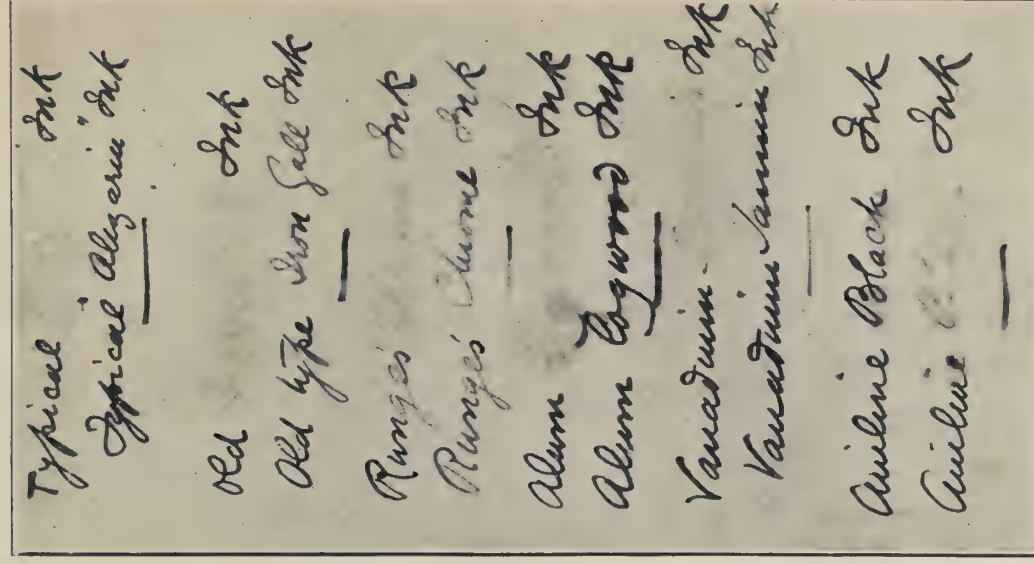 Typical Ink
"Typical Alizarin" Ink
Old Ink
Old type Iron Gall Ink
Runge's Ink
Runge's Chrome Ink
Alum Ink
Alum Logwood Ink
Vanadium- Ink
Vanadium Tannin Ink
Aniline Black Ink
Aniline Ink